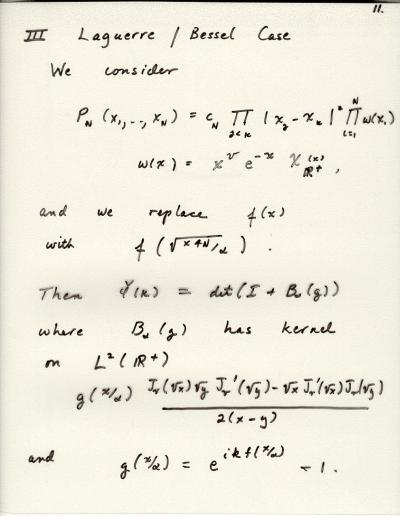 11.
III Laguerre / Bessel Case
We consider
P_N (x_1, .., x_N) = c_N ∏_{j<k} |x_j - x_k|² ∏_{i=1}^N w(x_i)
w(x) = x^ν e^{-x} χ_{ℝ⁺}(x) ,
and we replace f(x)
with f ( √(x 4N) / α ) .
Then φ̌(k) = det ( I + B_α (g) )
where B_α (g) has kernel
on L² ( ℝ⁺ )
g(x/α) (J_ν(√x) √y J_ν'(√y) - √x J_ν'(√x) J_ν(√y)) / 2(x-y)
and g(x/α) = e^{ikf(x/α)} - 1 .